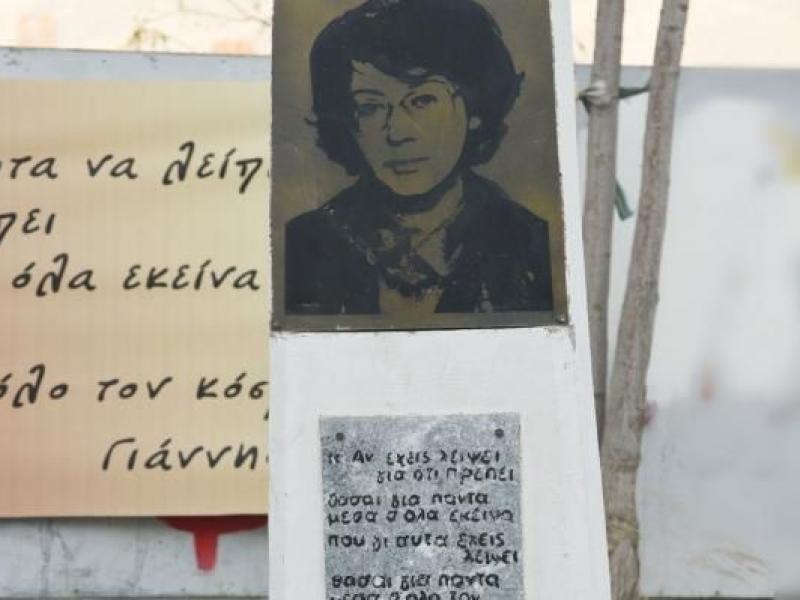 τα να λείπ
πει
όλα εκείνα
όλο τον κόσ
Γιάννη
"Αν έχεις λείψει
για ότι πρέπει
θασαι για παντα
μεσα σ ολα εκεινα
που γι αυτα εχεις
λειψει
θασαι για παντα
μεσα σ ολο τον